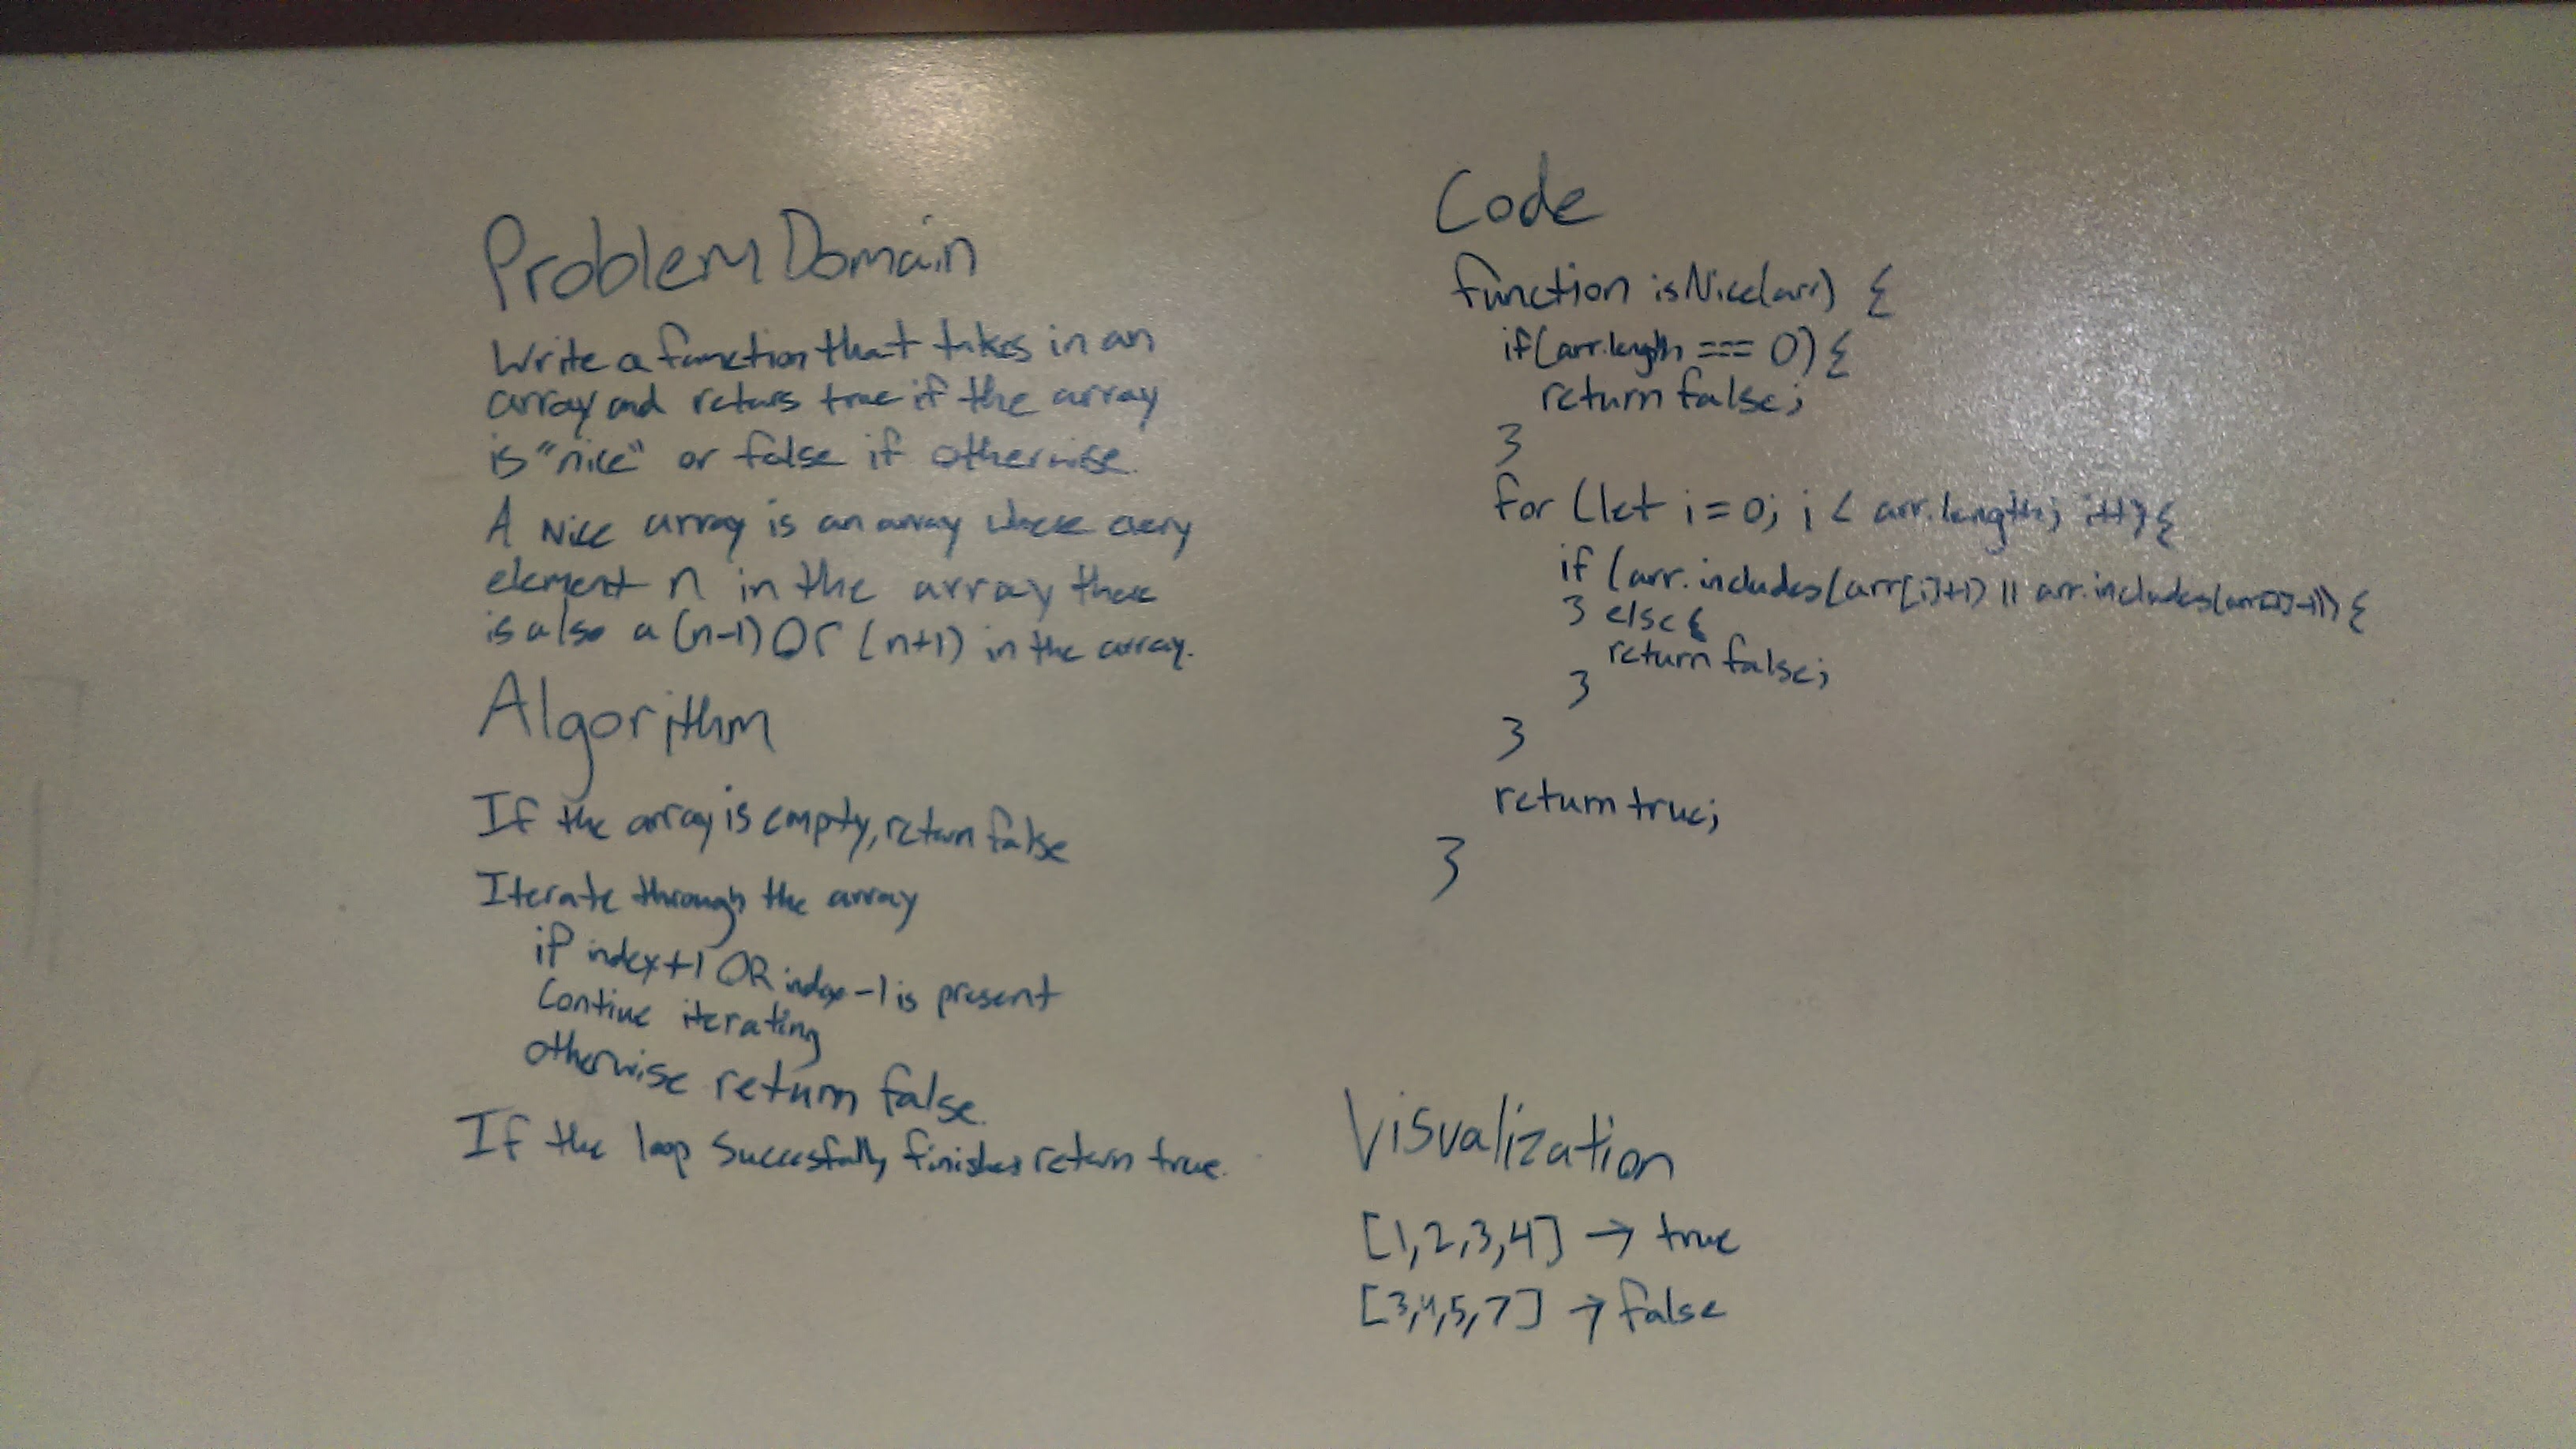 Problem Domain
Write a function that takes in an
array and returs true if the array
is "nice" or false if otherwise.
A Nice array is an array where every
element n in the array there
is also a (n-1) Or (n+1) in the array.
Algorithm
If the array is empty, return false
Iterate through the array
if index+1 OR index-1 is present
Contine iterating
otherwise return false.
If the loop Succesfully finishes return true.
Code
function isNice(arr) {
if(arr.length === 0) {
return false;
}
for (let i = 0; i < arr.length; i++) {
if (arr.includes(arr[i]+1) || arr.includes(arr[i]-1)) {
} else {
return false;
}
}
return true;
}
Visualization
[1,2,3,4] → true
[3,4,5,7] → false